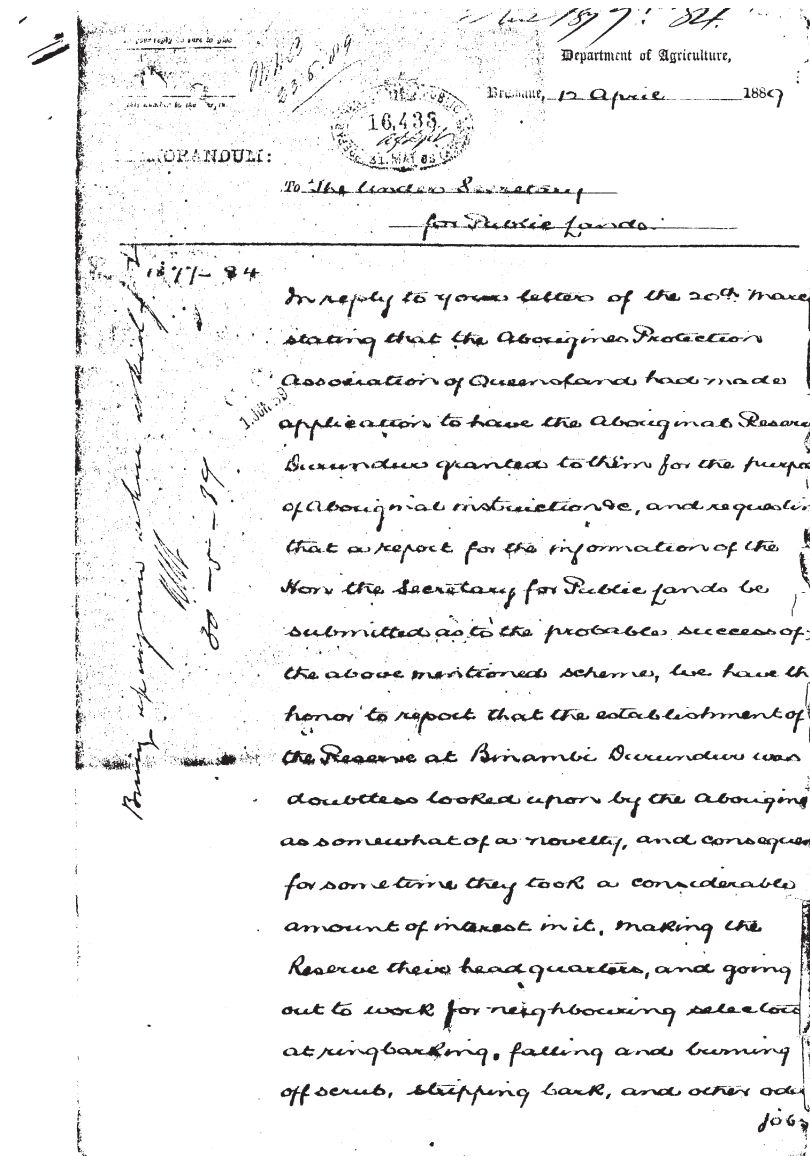 1877. 84.
In your reply be sure to give
this number to the
23.5.89
Department of Agriculture,
Brisbane, 12 April 1889
16,433
31. MAY 89
MORANDUM:
To The Under Secretary
for Public Lands.
1877-84
1 JUN 89
In reply to your letters of the 20th. Marc
stating that the Aborigines Protection
Association of Queensland had made
application to have the Aboriginal Reserv
Durundur granted to them for the purpo
of Aboriginal instruction &c, and requestin
that a report for the information of the
Hon the Secretary for Public Lands be
submitted as to the probable success of
the above mentioned scheme, We have th
honor to report that the establishment of
the Reserve at Binambi Durundur was
doubtless looked upon by the Aborigine
as somewhat of a novelty, and consequen
for some time they took a considerable
amount of interest in it, making the
Reserve their head quarters, and going
out to work for neighbouring selectors
at ringbarking, falling and burning
off scrub, stripping bark, and other odd
jobs
Bring up again when asked for
30-5-89